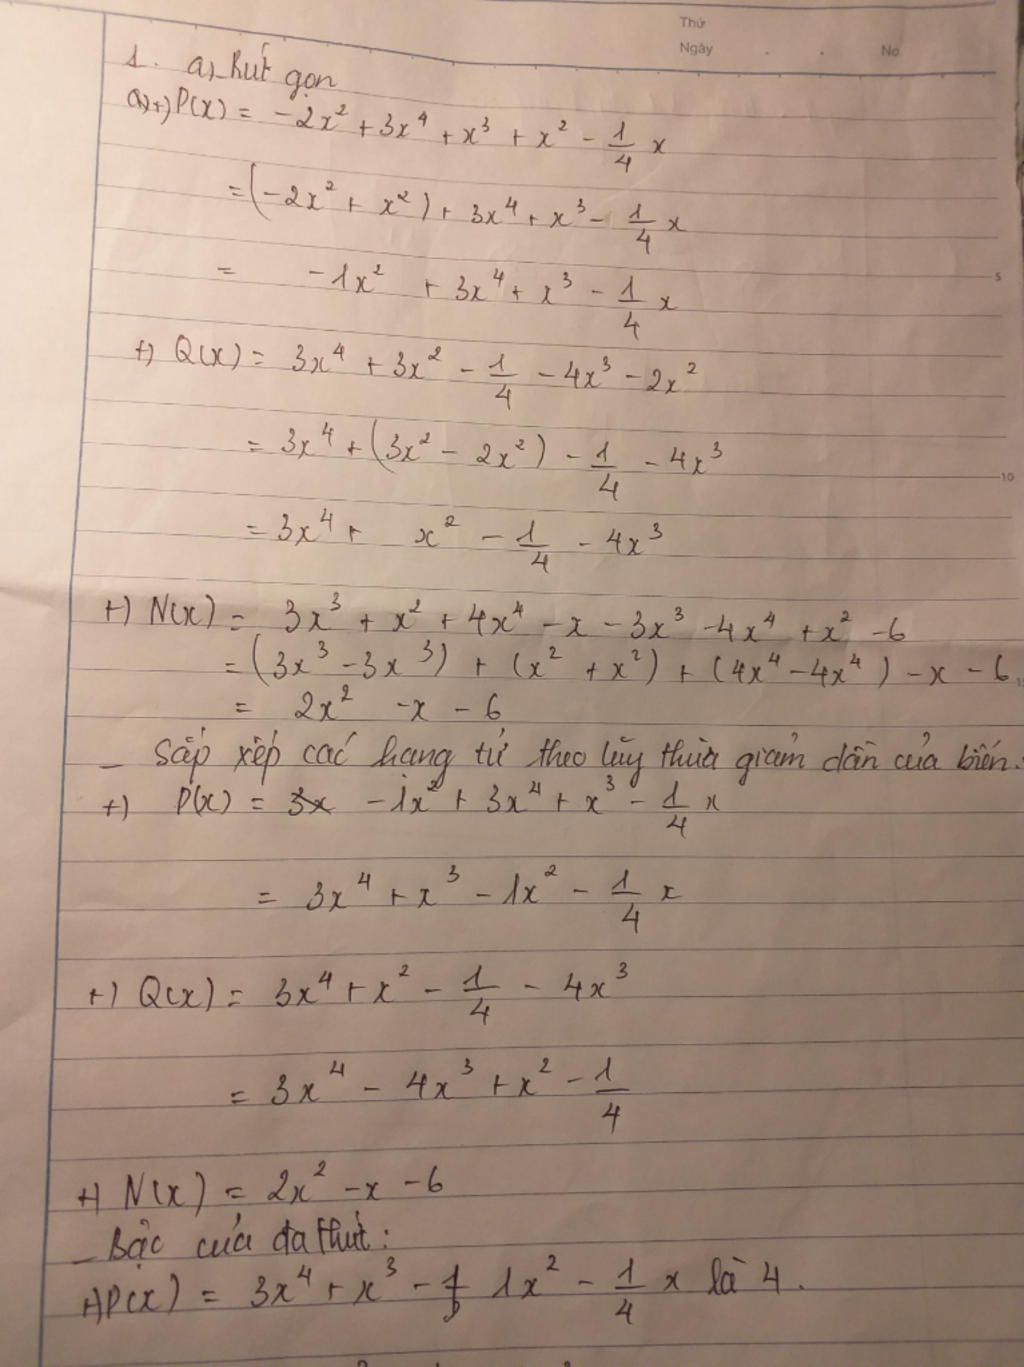 Thứ
Ngày . . No
1. a, Rút gọn
a, +) P(x) = -2x² + 3x⁴ + x³ + x² - 1/4 x
= (-2x² + x²) + 3x⁴ + x³ - 1/4 x
= -1x² + 3x⁴ + x³ - 1/4 x
5
+) Q(x) = 3x⁴ + 3x² - 1/4 - 4x³ - 2x²
= 3x⁴ + (3x² - 2x²) - 1/4 - 4x³
10
= 3x⁴ + x² - 1/4 - 4x³
+) N(x) = 3x³ + x² + 4x⁴ - x - 3x³ - 4x⁴ + x² - 6
= (3x³ - 3x³) + (x² + x²) + (4x⁴ - 4x⁴) - x - 6
= 2x² - x - 6
- Sắp xếp các hạng tử theo lũy thừa giảm dần của biến.
+) P(x) = -1x² + 3x⁴ + x³ - 1/4 x
= 3x⁴ + x³ - 1x² - 1/4 x
+) Q(x) = 3x⁴ + x² - 1/4 - 4x³
= 3x⁴ - 4x³ + x² - 1/4
+) N(x) = 2x² - x - 6
- Bậc của đa thức :
+) P(x) = 3x⁴ + x³ - 1x² - 1/4 x là 4.